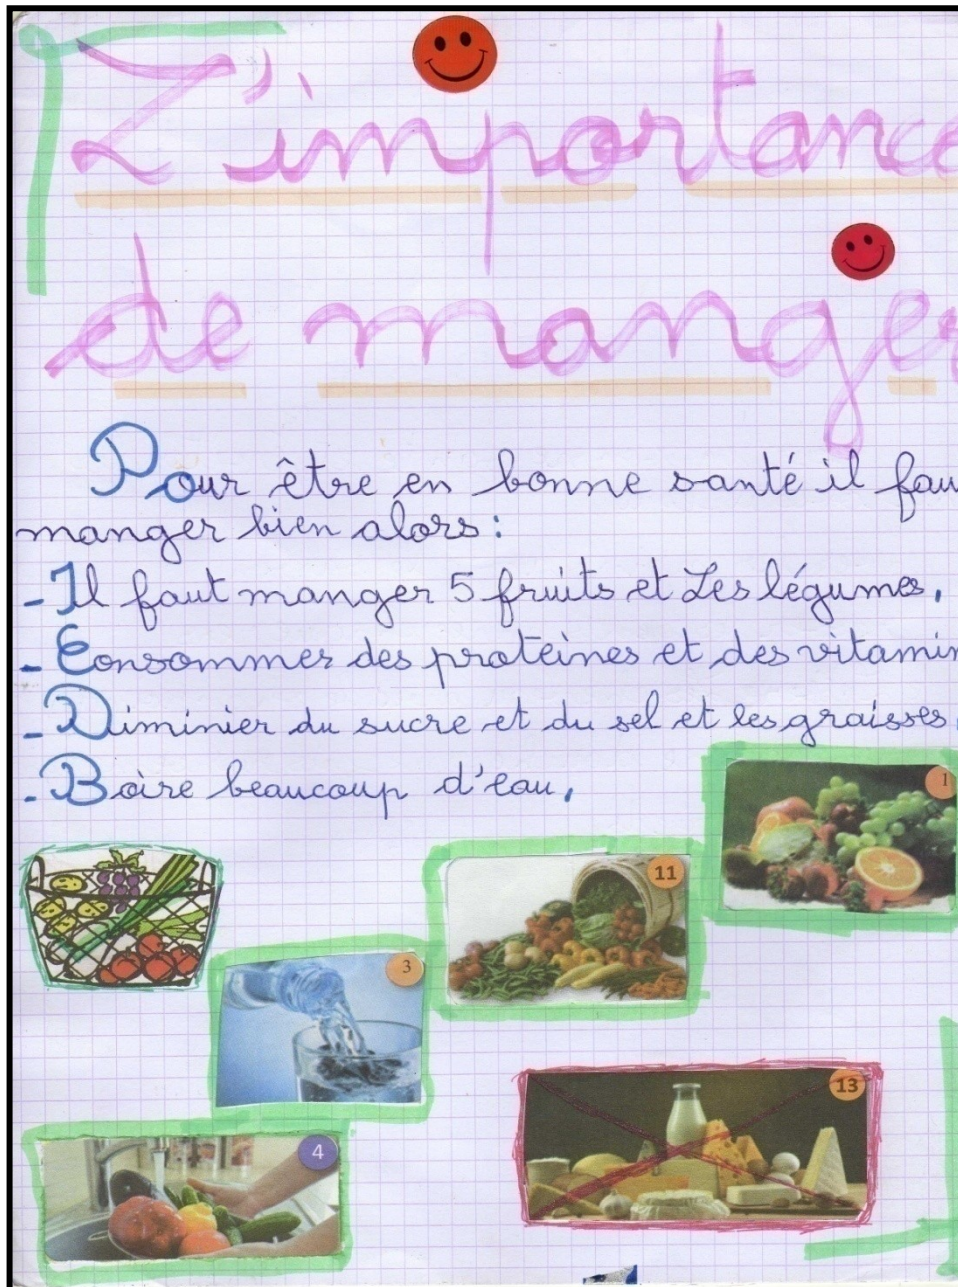 L'importance
de manger
Pour être en bonne santé il fau
manger bien alors:
- Il faut manger 5 fruits et Les légumes,
- Consommer des protéines et des vitamin
- Diminier du sucre et du sel et les graisses.
- Boire beaucoup d'eau,
1
11
3
13
4